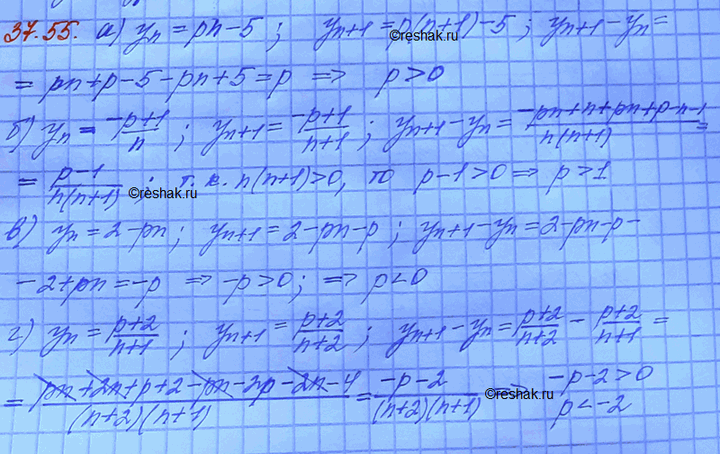 37.55. а) yₙ = pn-5 ; yₙ₊₁ = p(n+1)-5 ; yₙ₊₁-yₙ =
©reshak.ru
= pn+p-5-pn+5 = p ⇒ p>0
б) yₙ = (-p+1)/n ; yₙ₊₁ = (-p+1)/(n+1) ; yₙ₊₁-yₙ = (-pn+n+pn+p-n-1)/(n(n+1)) =
= (p-1)/(n(n+1)) ; т.к. n(n+1)>0, то p-1>0 ⇒ p>1
©reshak.ru
в) yₙ = 2-pn ; yₙ₊₁ = 2-pn-p ; yₙ₊₁-yₙ = 2-pn-p-
-2+pn = -p ⇒ -p>0 ; ⇒ p<0
г) yₙ = (p+2)/(n+1) ; yₙ₊₁ = (p+2)/(n+2) ; yₙ₊₁-yₙ = (p+2)/(n+2) - (p+2)/(n+1) =
= (pn+2n+p+2-pn-2p-2n-4)/((n+2)(n+1)) = (-p-2)/((n+2)(n+1)) ⇒ -p-2>0
p<-2
©reshak.ru